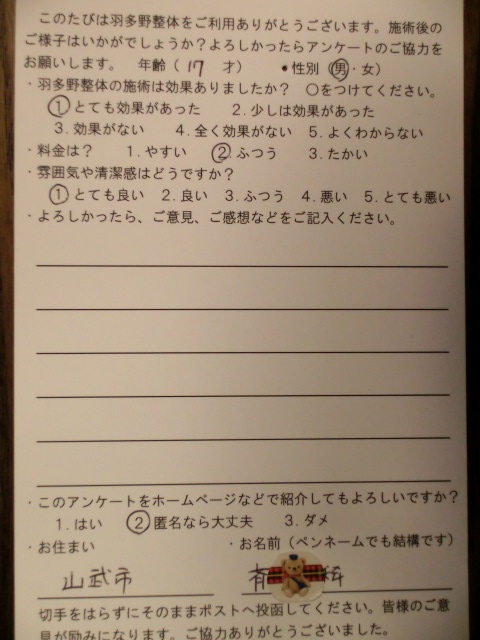 このたびは羽多野整体をご利用ありがとうございます。施術後の
ご様子はいかがでしょうか？よろしかったらアンケートのご協力を
お願いします。 年齢（ 17 才） ●性別（男・女）
・羽多野整体の施術は効果ありましたか？ ○をつけてください。
1 とても効果があった 2. 少しは効果があった
3. 効果がない 4. 全く効果がない 5. よくわからない
・料金は？ 1. やすい 2. ふつう 3. たかい
・雰囲気や清潔感はどうですか？
1 とても良い 2. 良い 3. ふつう 4. 悪い 5. とても悪い
・よろしかったら、ご意見、ご感想などをご記入ください。
・このアンケートをホームページなどで紹介してもよろしいですか？
1. はい 2 匿名なら大丈夫 3. ダメ
・お住まい ・お名前（ペンネームでも結構です）
山武市
切手をはらずにそのままポストへ投函してください。皆様のご意
見が励みになります。ご協力ありがとうございました。